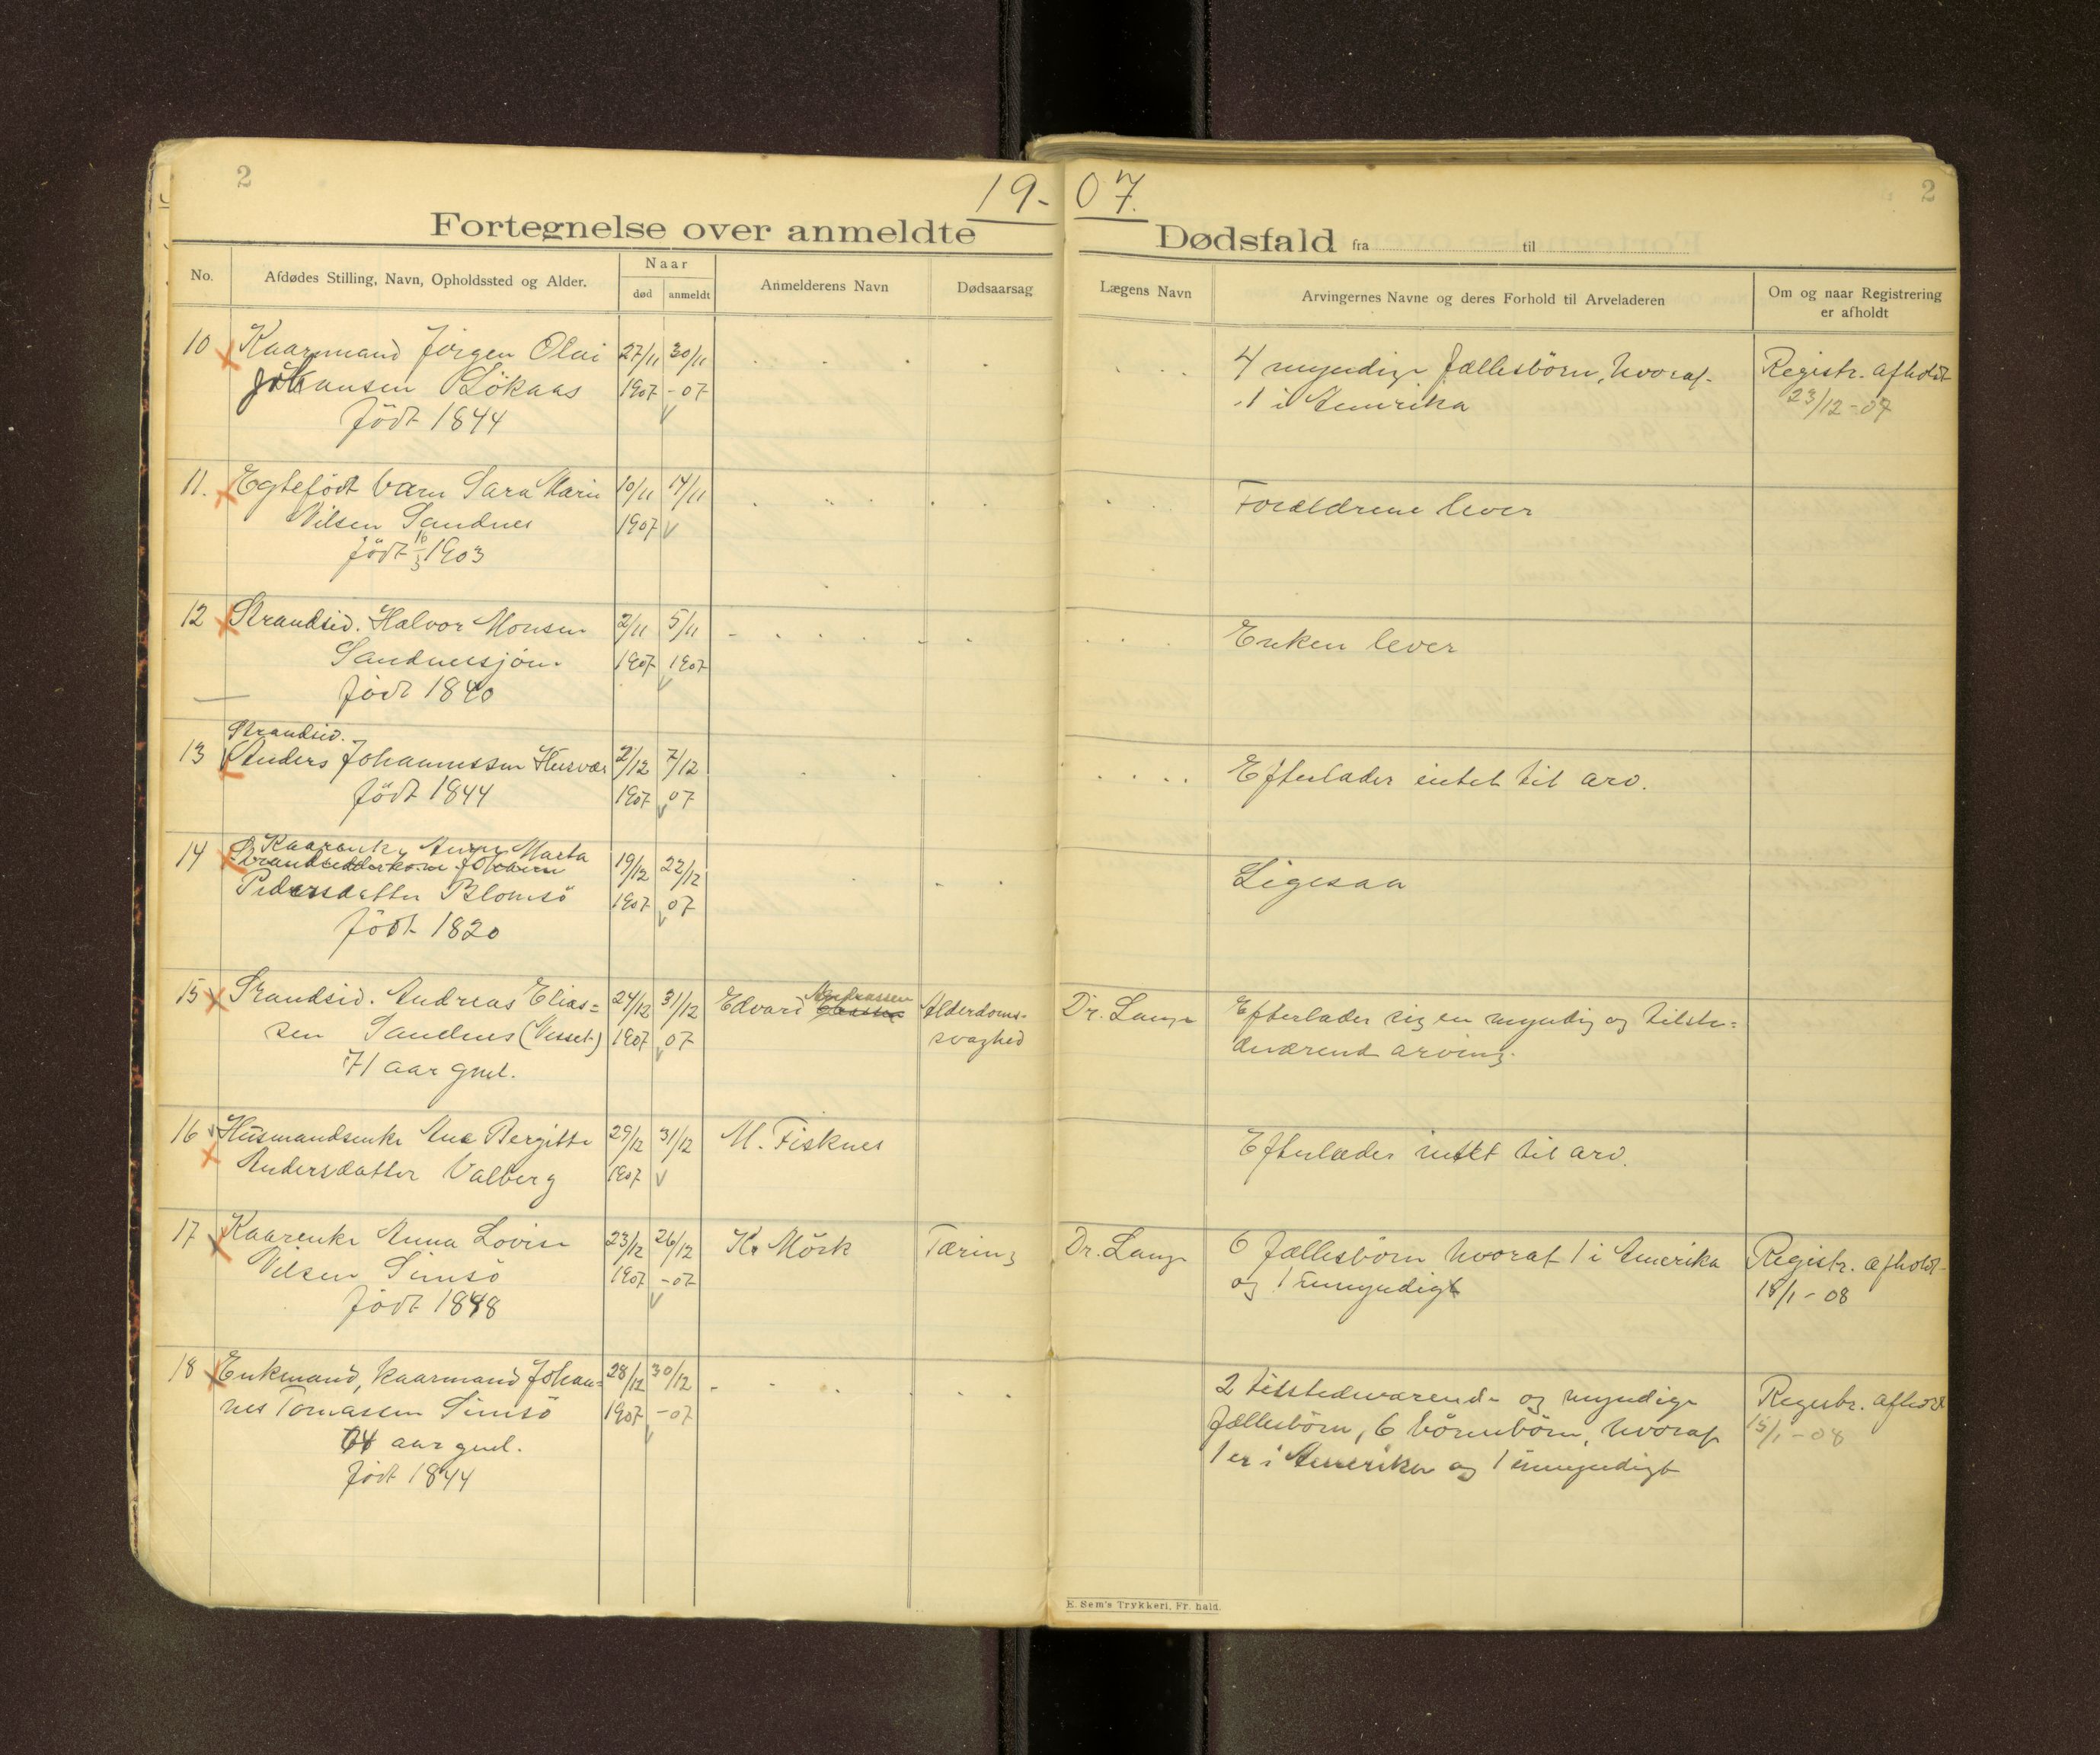 2
19-07.
2
Fortegnelse over anmeldte Dødsfald fra til
No.
Afdødes Stilling, Navn, Opholdssted og Alder.
Naar
død
anmeldt
Anmelderens Navn
Dødsaarsag
Lægens Navn
Arvingernes Navne og deres Forhold til Arveladeren
Om og naar Registrering
er afholdt
10 Kaarmand Jørgen Olai 27/11 30/11 4 myndige fællesbörn, hvoraf Registr. afholdt
Johansen Lökaas 1907 -07 1 i Amerika 23/12-07
födt 1844
11. Egtefödt barn Sara Marie 10/11 14/11 Forældrene lever
Nilsen Sandnes 1907
födt 16/3 1903
12 Strandsid. Halvor Monsen 2/11 5/11 Enken lever
Sandnessjöen 1907 1907
födt 1840
Strandsid.
13 Anders Johannessen Husvær 2/12 7/12 Efterlader intet til arv.
födt 1844 1907 07
Kaarenke Anne Marta
14 19/12 22/12 Ligesaa
Pedersdatter Blomsö 1907 07
födt 1820
15 Strandsid. Andreas Elias= 24/12 31/12 Edvard Andreassen Alderdoms- Dr. Lange Efterlader sig en myndig og tilste=
sen Sandnes (Vesset.) 1907 07 svaghed deværend arving.
71 aar gml.
16 Husmandsenke Ane Bergitte 29/12 31/12 M. Fisknes Efterlader intet til arv.
Andersdatter Valberg 1907
17 Kaarenke Anna Lovise 23/12 26/12 K. Mörk Tæring Dr. Lange 6 fællesbörn hvoraf 1 i Amerika Registr. afholdt
Nilsen Simsö 1907 -07 og 1 umyndigt 15/1-08
födt 1848
18 Enkmand, kaarmand Johan= 28/12 30/12 2 tilstedeværende og myndige Registr. afholdt
nes Tomassen Simsö 1907 -07 fællesbörn, 6 börnebörn, hvoraf 15/1-08
64 aar gml. 1 er i Amerika og 1 umyndigt
födt 1844
E. Sem's Trykkeri, Fr. hald.